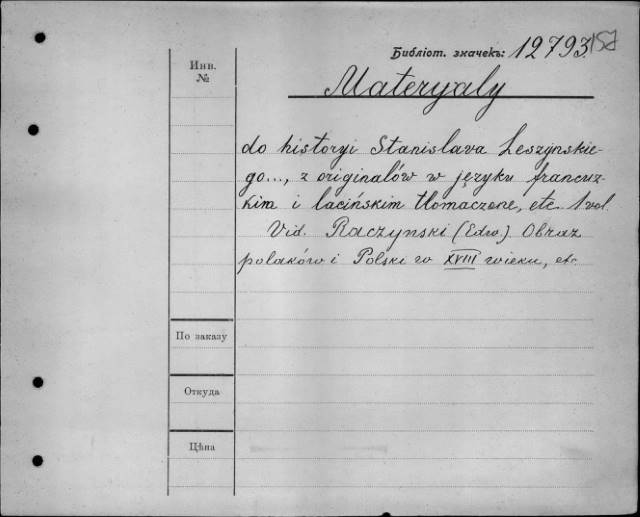 Библіот. значекъ: 12793
Инв.
№
Materyaly
do historyi Stanislava Leszynskie-
go..., z originalów w języku francuz-
kim i lacińskim tłomaczone, etc. 1 vol.
Vid. Raczynski (Edw.) Obraz
polaków i Polski w XVIII wieku, etc.
По заказу
Откуда
Цѣна